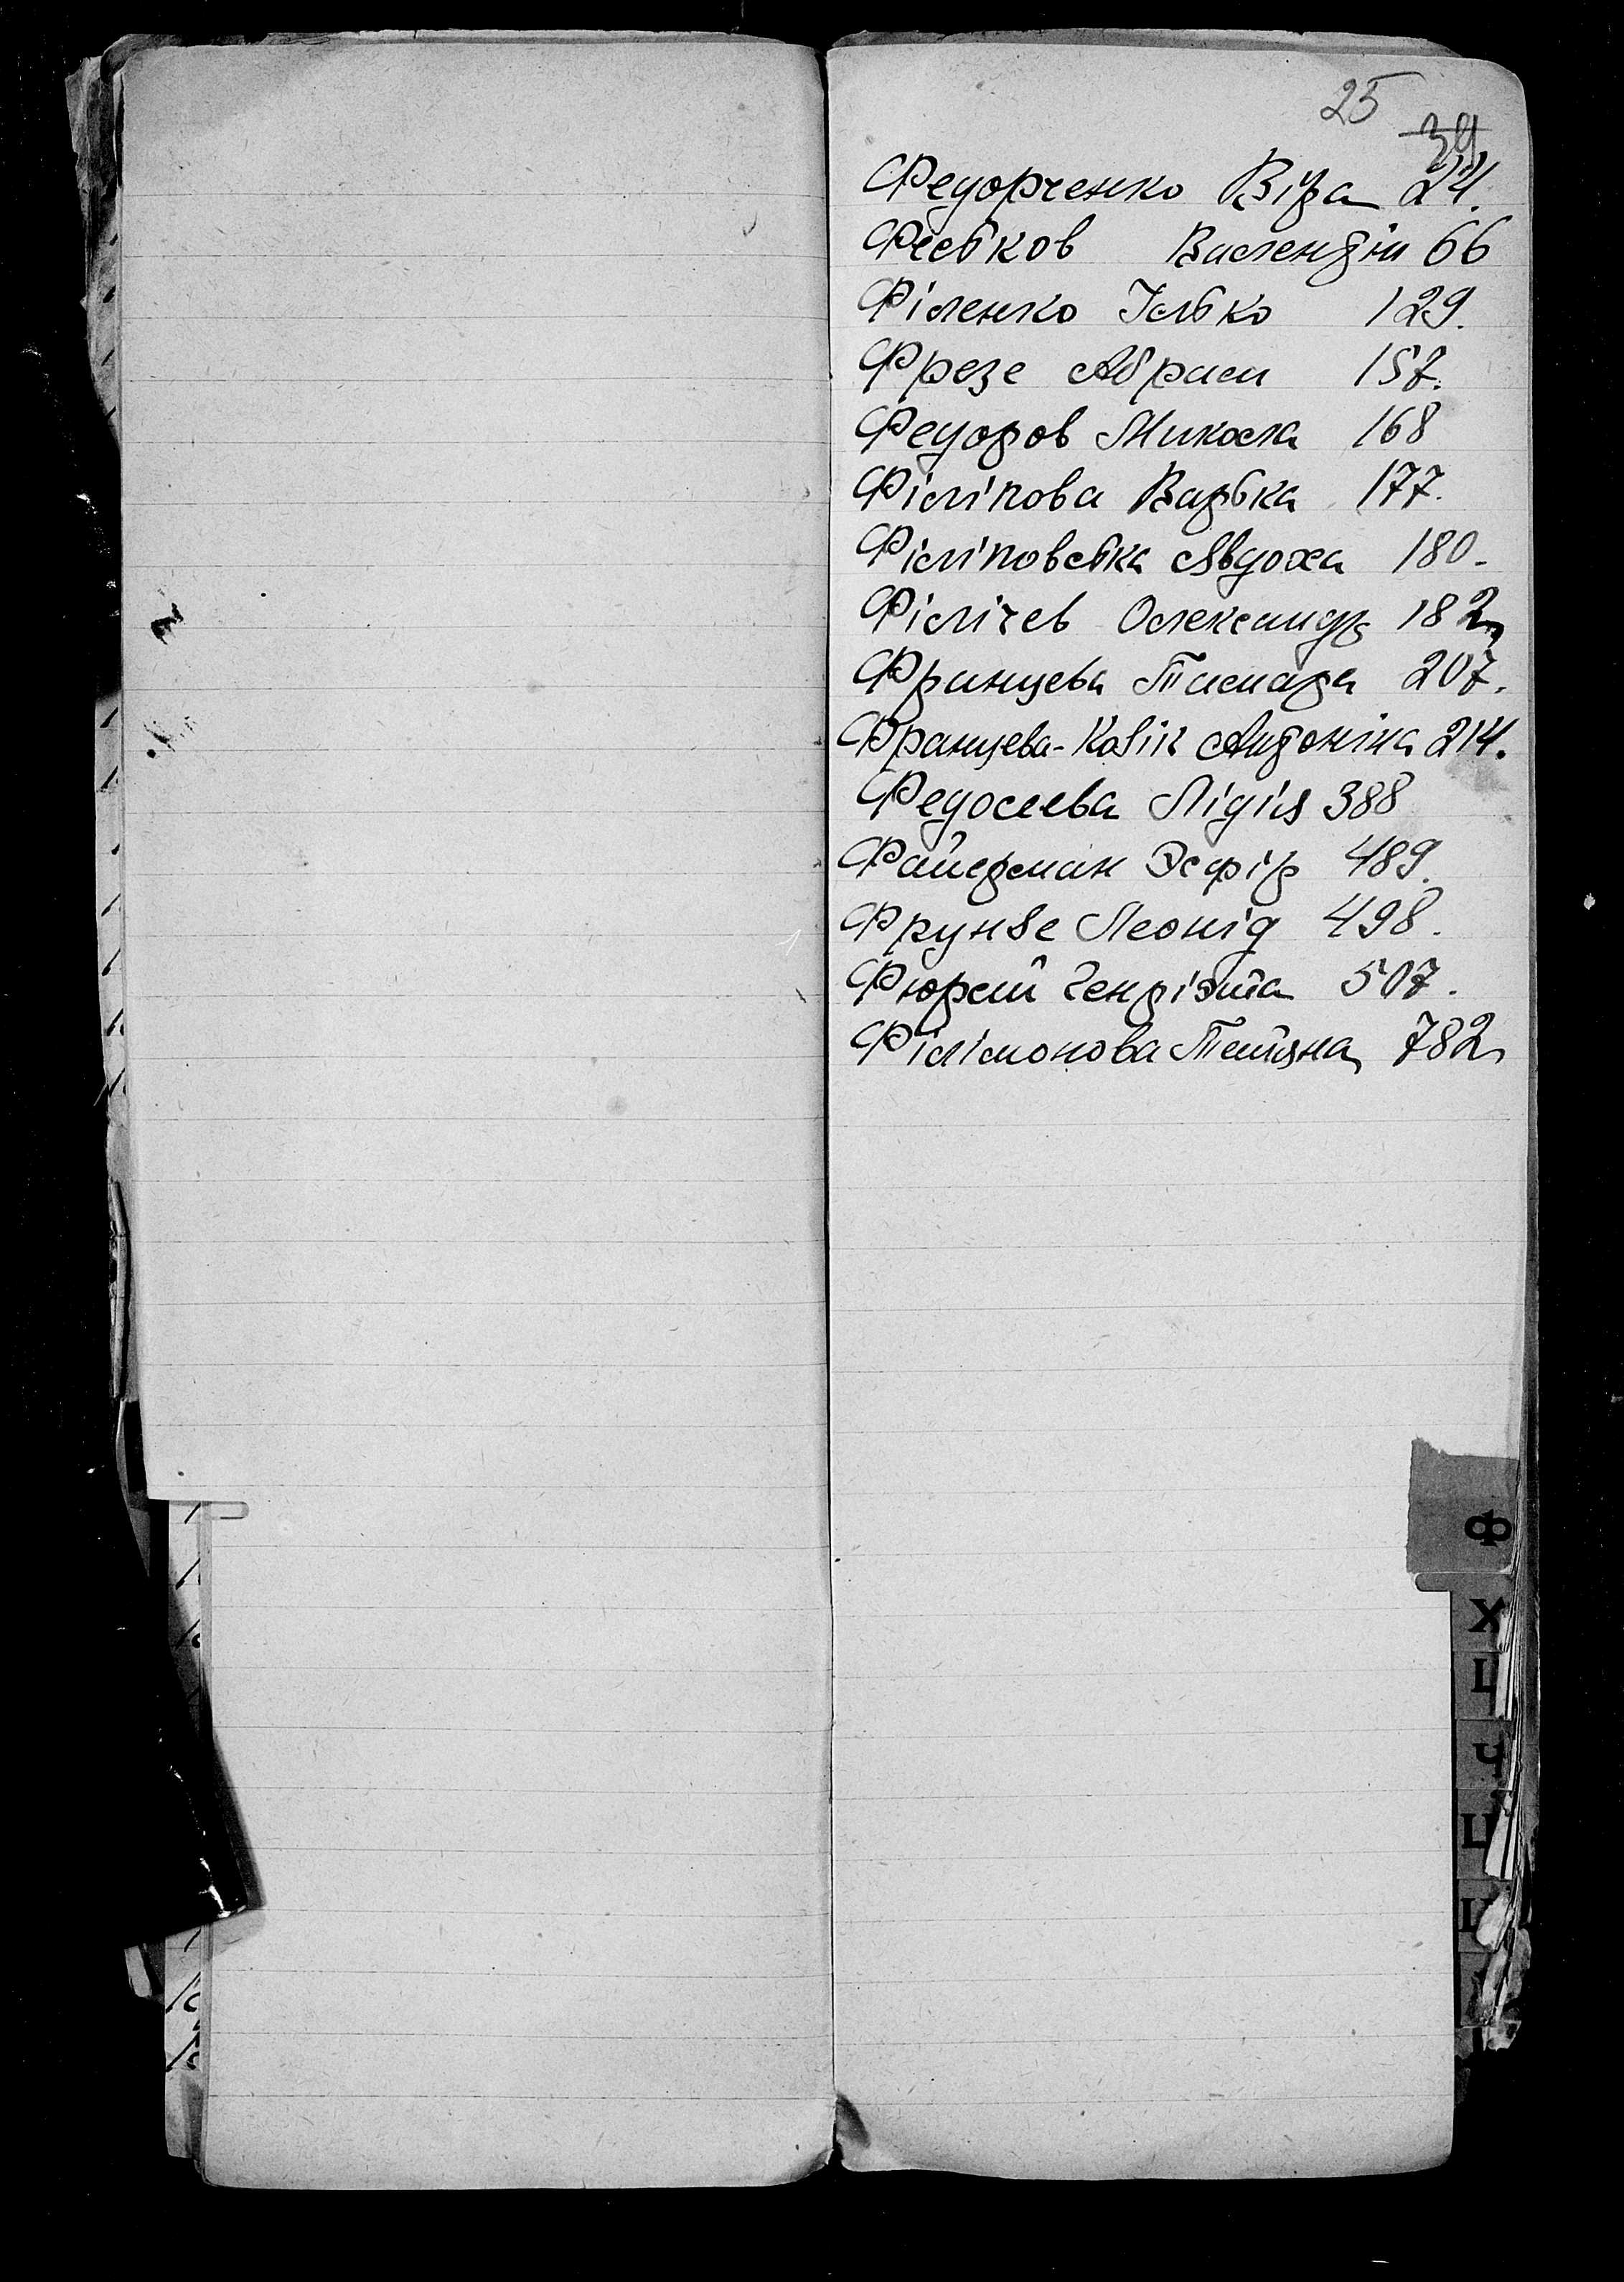 25
39
Федорченко Віра 24.
Феськов Валентін 66
Філенко Ілько 129.
Фрезе Абрам 157.
Федоров Микола 168
Філіпова Варька 177.
Філіповська Явдоха 180.
Філічев Олександр 182
Францева Тамара 207.
Францева-Кавік Антоніна 214.
Федосеева Лідія 388
Файерман Эсфір 489.
Фрунзе Леонід 498.
Фюрст Генріэта 507.
Філімонова Тетяна 782
Ф
Х
Ц
Ч